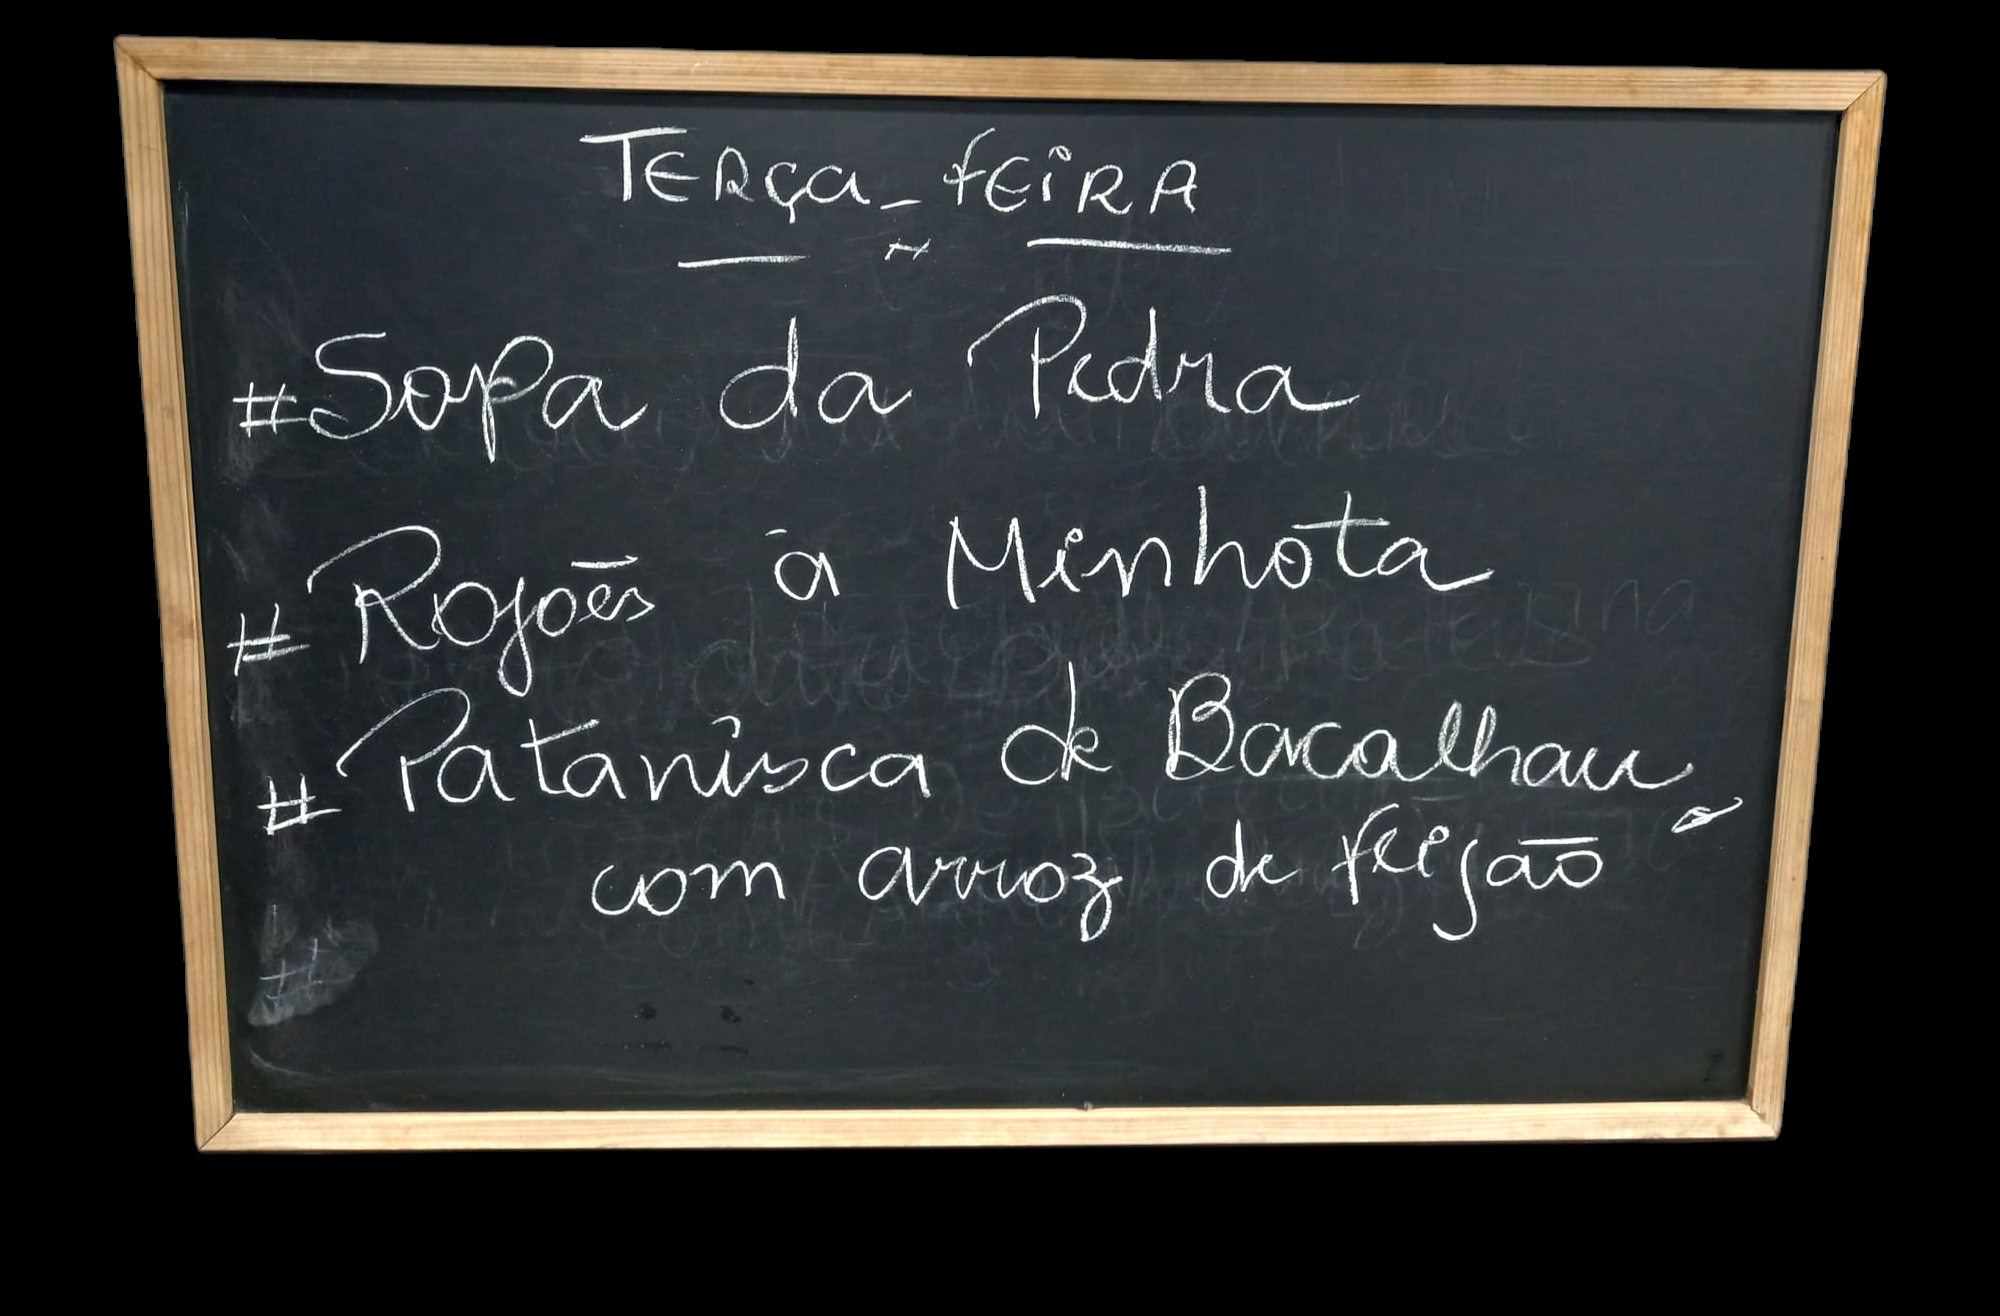 TERÇA-FEIRA
# Sopa da Pedra
# Rojões à Minhota
# Patanisca de Bacalhau
com arroz de feijão
#